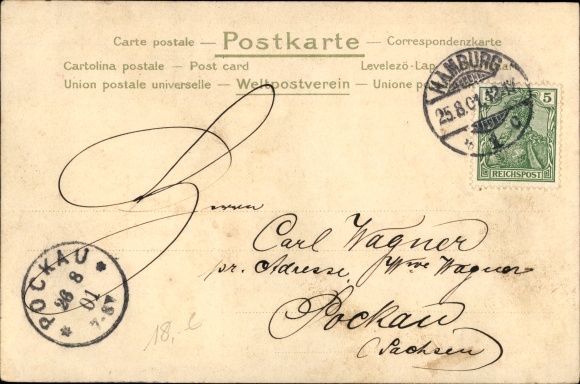 Carte postale — Postkarte — Correspondenzkarte
Cartolina postale — Post card Levelező-Lap
Union postale universelle — Weltpostverein — Unione
HAMBURG
25.8.01
1
5
REICHSPOST
Herrn
Carl Wagner
pr. Adresse Wwe Wagner
Pockau
(Sachsen)
POCKAU
26 8
01
7-8V
18,-